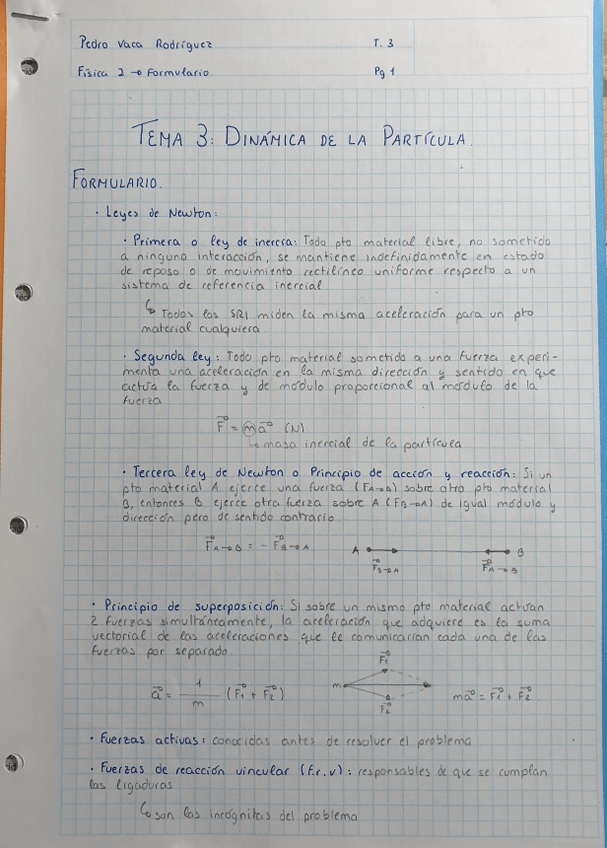 Pedro Vaca Rodríguez T. 3
Física 2 → Formulario Pg 1
TEMA 3: DINÁMICA DE LA PARTÍCULA.
FORMULARIO.
· Leyes de Newton:
· Primera o ley de inercia: Todo pto material libre, no sometido
a ninguna interacción, se mantiene indefinidamente en estado
de reposo o de movimiento rectilíneo uniforme respecto a un
sistema de referencia inercial
↳ Todos los SRI miden la misma aceleración para un pto
material cualquiera
· Segunda ley: Todo pto material sometido a una fuerza experi-
menta una aceleración en la misma dirección y sentido en que
actúa la fuerza y de módulo proporcional al módulo de la
fuerza
F⃗ = m a⃗ (N)
↳ masa inercial de la partícula
· Tercera ley de Newton o Principio de acción y reacción: Si un
pto material A ejerce una fuerza (F A→B) sobre otro pto material
B, entonces B ejerce otra fuerza sobre A (F B→A) de igual módulo y
dirección pero de sentido contrario.
F⃗ A→B = - F⃗ B→A A B
F⃗ B→A F⃗ A→B
· Principio de superposición: Si sobre un mismo pto material actúan
2 fuerzas simultáneamente, la aceleración que adquiere es la suma
vectorial de las aceleraciones que le comunicarían cada una de las
fuerzas por separado.
a⃗ = 1/m (F⃗1 + F⃗2) m F⃗1 F⃗2 m a⃗ = F⃗1 + F⃗2
· Fuerzas activas: conocidas antes de resolver el problema
· Fuerzas de reacción vincular (f.r.v): responsables de que se cumplan
las ligaduras
↳ son las incógnitas del problema